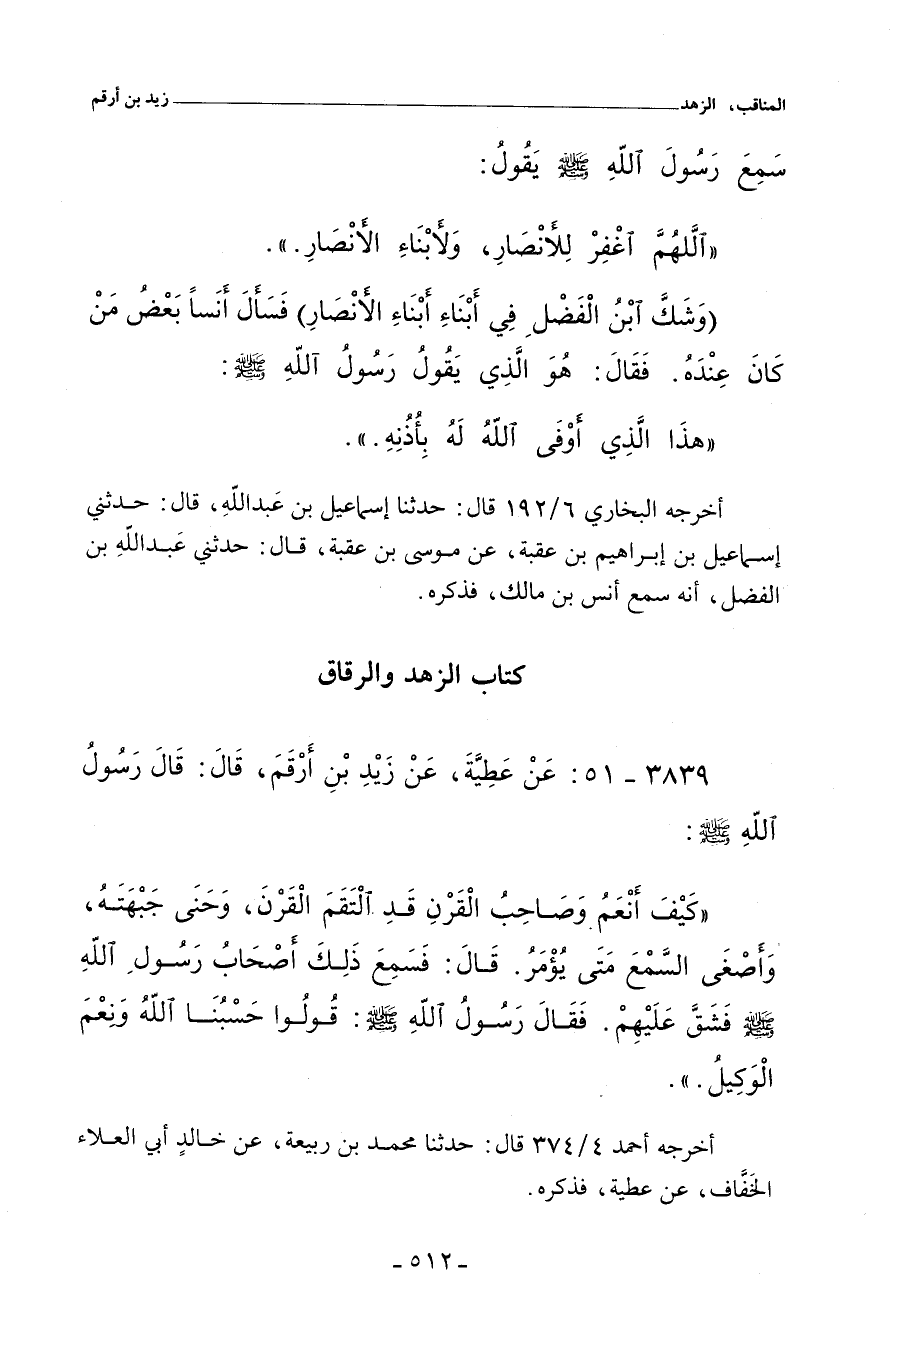 المناقب، الزهد ــــــــــــــــــــ زيد بن أرقم
سَمِعَ رَسُولَ ٱللّهِ ﷺ يَقُولُ:
«ٱللَّهُمَّ ٱغْفِرْ لِلأَنْصَارِ، وَلأَبْنَاءِ الأَنْصَارِ.».
(وَشَكَّ ٱبْنُ الْفَضْلِ فِي أَبْنَاءِ أَبْنَاءِ الأَنْصَارِ) فَسَأَلَ أَنَساً بَعْضُ مَنْ
كَانَ عِنْدَهُ. فَقَالَ: هُوَ الَّذِي يَقُولُ رَسُولُ ٱللّهِ ﷺ:
«هذَا الَّذِي أَوْفَى ٱللّهُ لَهُ بِأُذُنِهِ.».
أخرجه البخاري ١٩٢/٦ قال: حدثنا إسماعيل بن عَبداللّهِ، قال: حدثني
إسماعيل بن إبراهيم بن عقبة، عن موسى بن عقبة، قال: حدثني عَبداللّهِ بن
الفضل، أنه سمع أنس بن مالك، فذكره.
كتاب الزهد والرقاق
٣٨٣٩ - ٥١: عَنْ عَطِيَّةَ، عَنْ زَيْدِ بْنِ أَرْقَمَ، قَالَ: قَالَ رَسُولُ
ٱللّهِ ﷺ:
«كَيْفَ أَنْعَمُ وَصَاحِبُ الْقَرْنِ قَدِ ٱلْتَقَمَ الْقَرْنَ، وَحَنَى جَبْهَتَهُ،
وَأَصْغَى السَّمْعَ مَتَى يُؤْمَرُ. قَالَ: فَسَمِعَ ذَلِكَ أَصْحَابُ رَسُولِ ٱللّهِ
ﷺ فَشَقَّ عَلَيْهِمْ. فَقَالَ رَسُولُ ٱللّهِ ﷺ: قُولُوا حَسْبُنَا ٱللّهُ وَنِعْمَ
الْوَكِيلُ.».
أخرجه أحمد ٣٧٤/٤ قال: حدثنا محمد بن ربيعة، عن خالدٍ أبي العلاء
الخَفَّاف، عن عطية، فذكره.
- ٥١٢ -